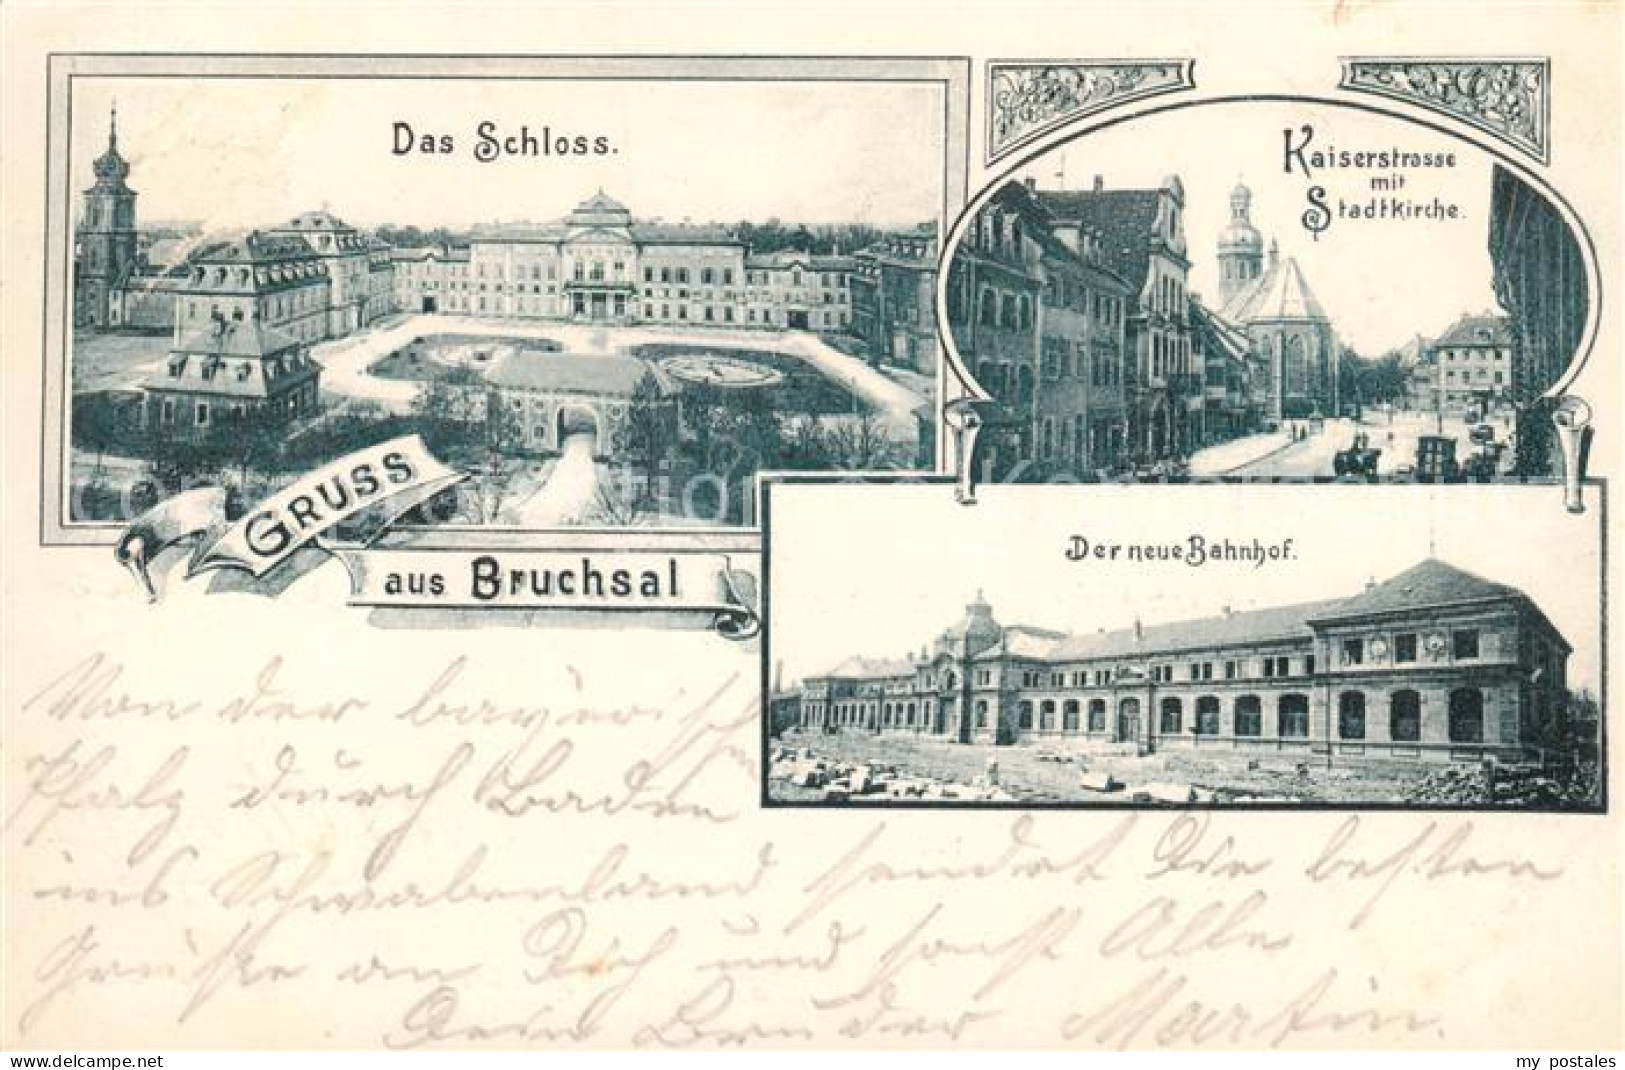 Das Schloss.
Kaiserstrasse
mit
Stadtkirche.
GRUSS
aus Bruchsal
Der neue Bahnhof.
Von der bayerischen
Pfalz durch Baden
ins Schwabenland sendet Die besten
Grüße an Dich und sonst Alle
Dein Bruder Martin.
my postales